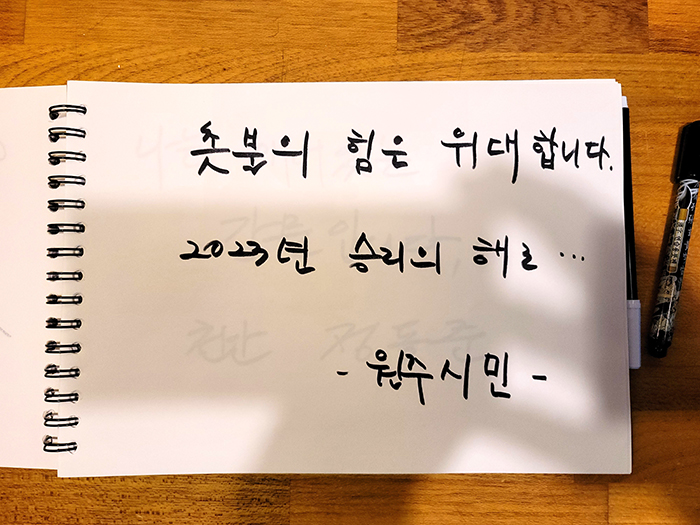 촛불의 힘은 위대합니다.
2023년 승리의 해로…
- 원주시민 -